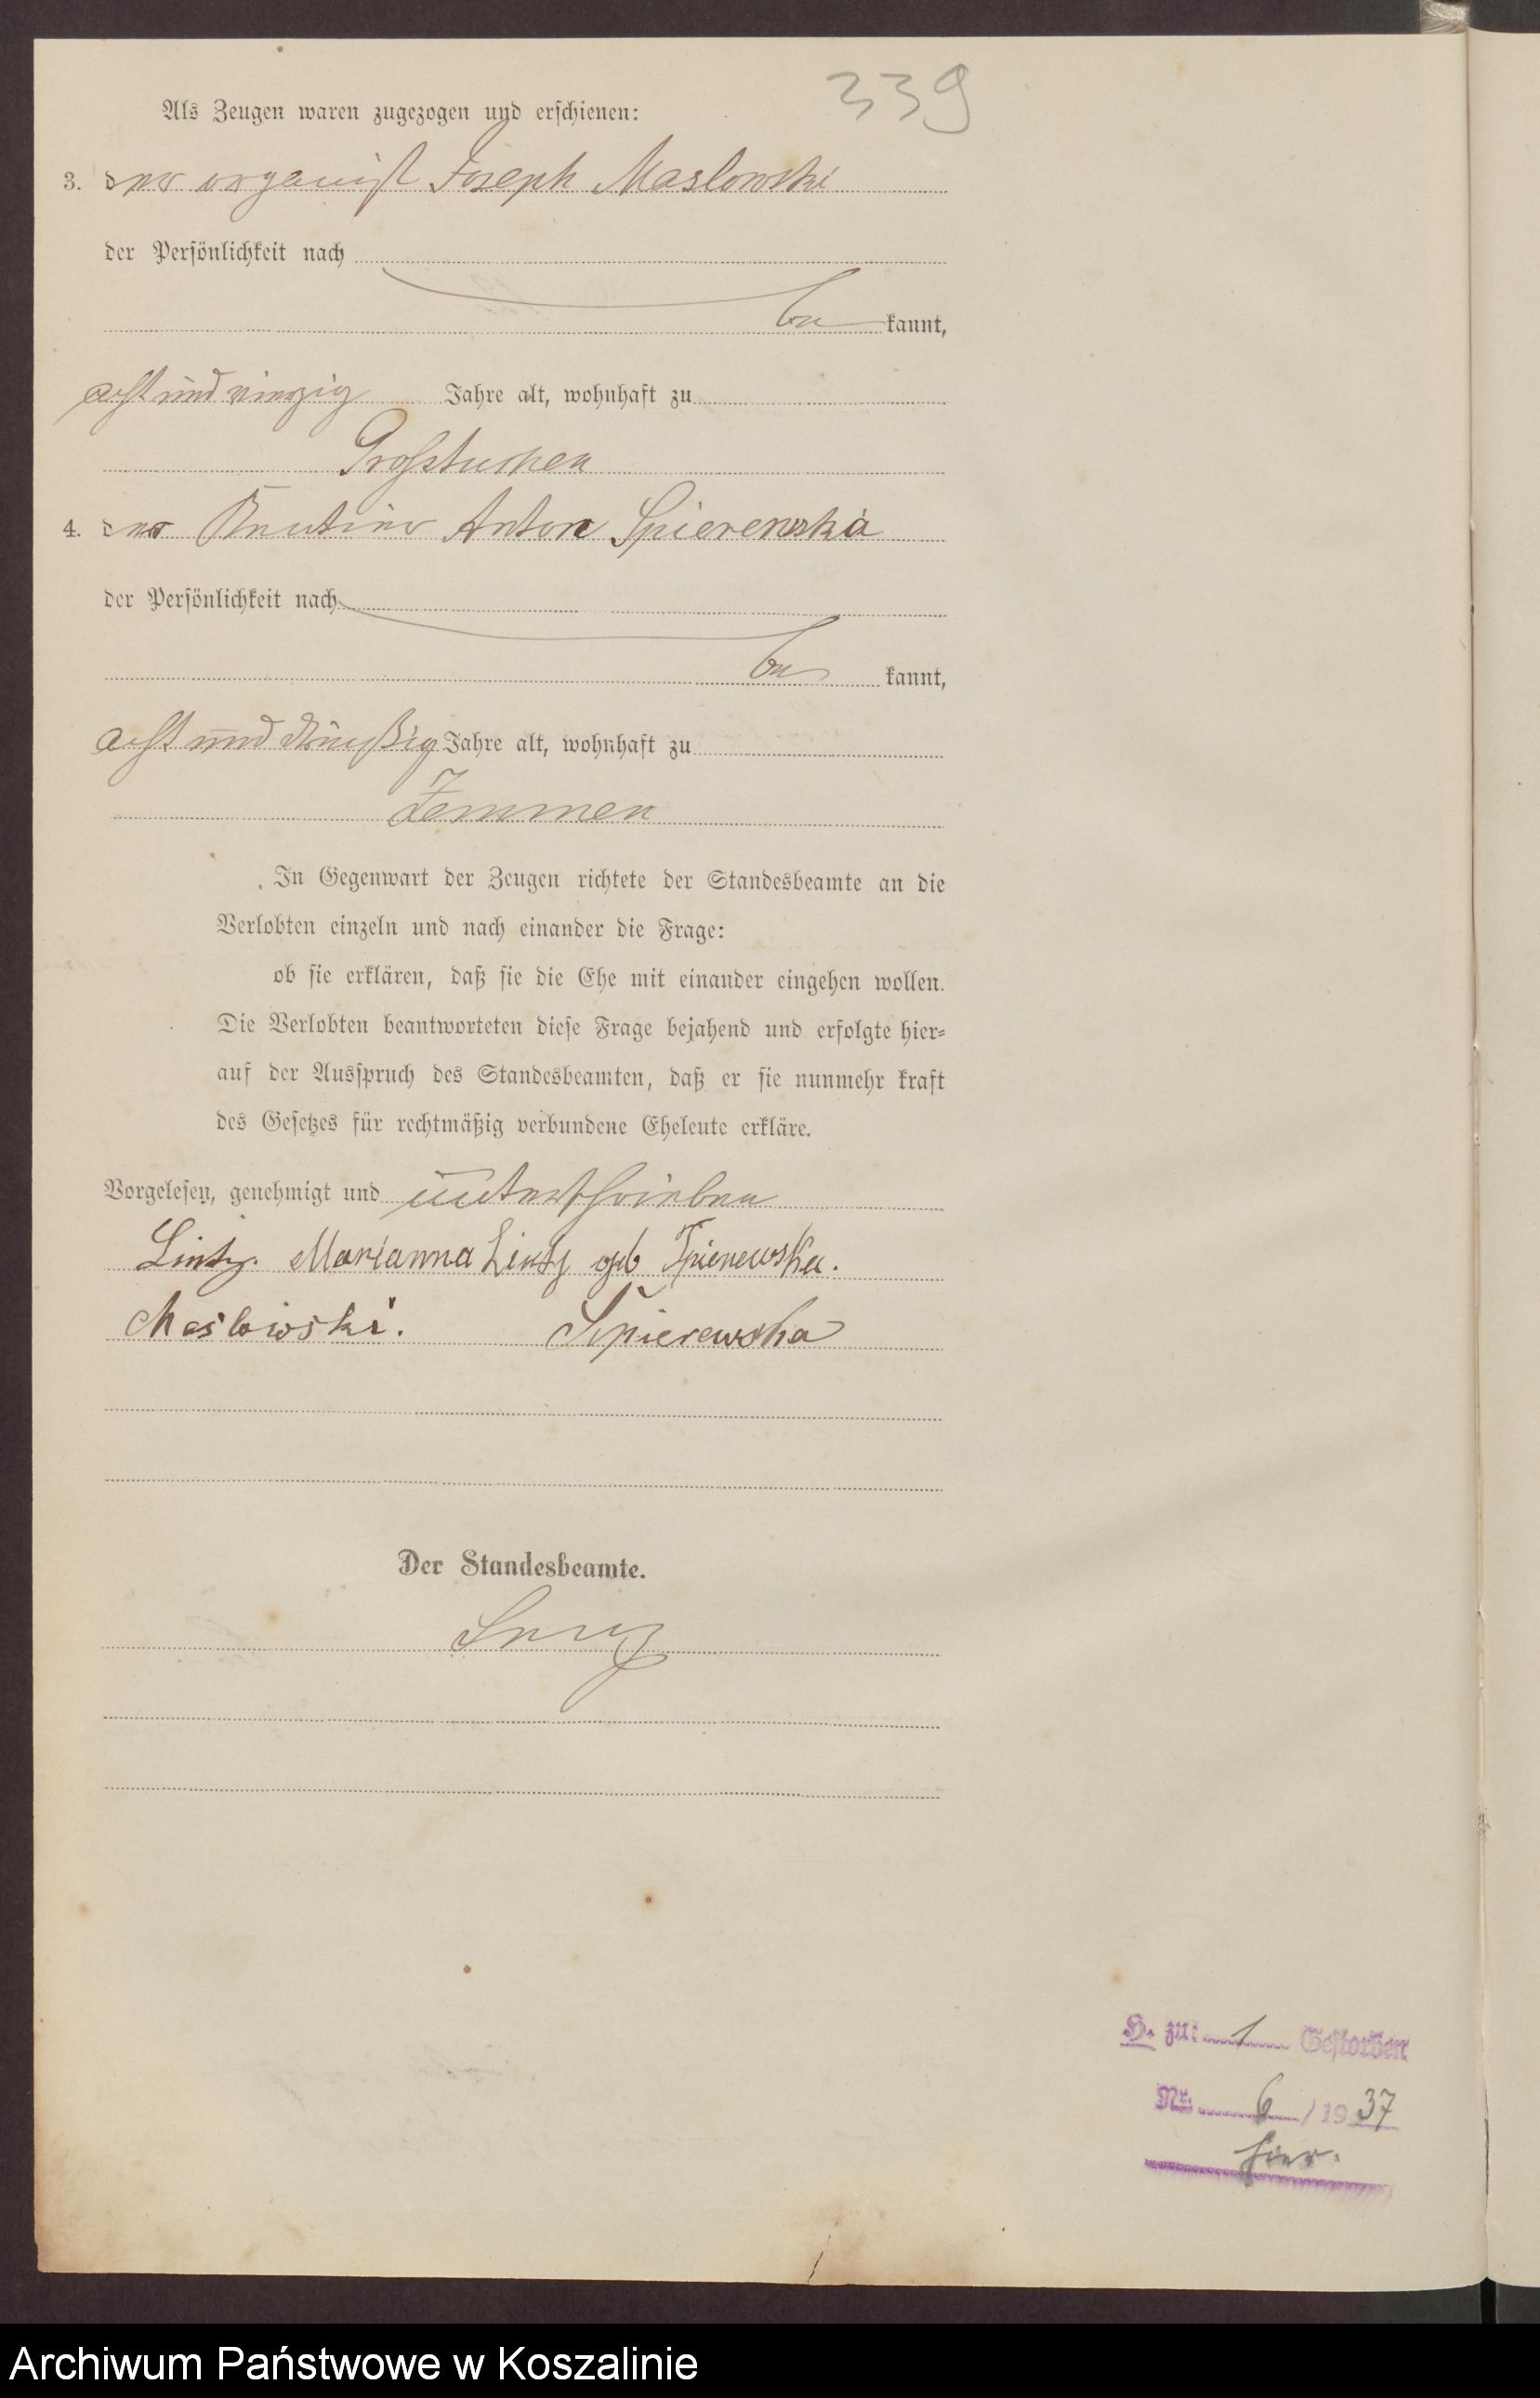 339
Als Zeugen waren zugezogen und erschienen:
3. der organist Joseph Maslowski
der Persönlichkeit nach
be kannt,
acht und vierzig Jahre alt, wohnhaft zu
Großtuchen
4. der Rentier Anton Spierewska
der Persönlichkeit nach
be kannt,
acht und dreißig Jahre alt, wohnhaft zu
Zemmen
In Gegenwart der Zeugen richtete der Standesbeamte an die
Verlobten einzeln und nach einander die Frage:
ob sie erklären, daß sie die Ehe mit einander eingehen wollen.
Die Verlobten beantworteten diese Frage bejahend und erfolgte hier-
auf der Ausspruch des Standesbeamten, daß er sie nunmehr kraft
des Gesetzes für rechtmäßig verbundene Eheleute erkläre.
Vorgelesen, genehmigt und unterschrieben
Lintz. Marianna Lintz geb Spierewska.
Maslowski. Spierewska
Der Standesbeamte.
H. zu: 1 Gestorben
Nr. 6 / 1937
hier.
Archiwum Państwowe w Koszalinie